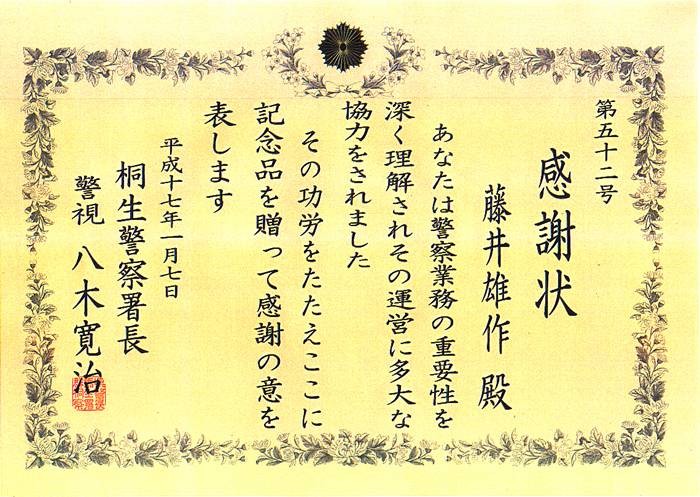 第五十二号
感謝状
藤井雄作 殿
あなたは警察業務の重要性を
深く理解されその運営に多大な
協力をされました
その功労をたたえここに
記念品を贈って感謝の意を
表します
平成十七年一月七日
桐生警察署長
警視 八木寛治